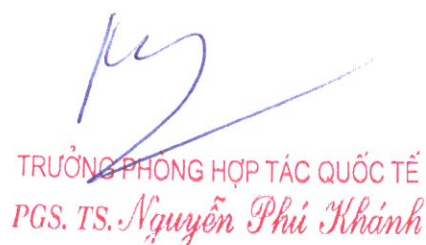 TRƯỞNG PHÒNG HỢP TÁC QUỐC TẾ
PGS. TS. Nguyễn Phú Khánh